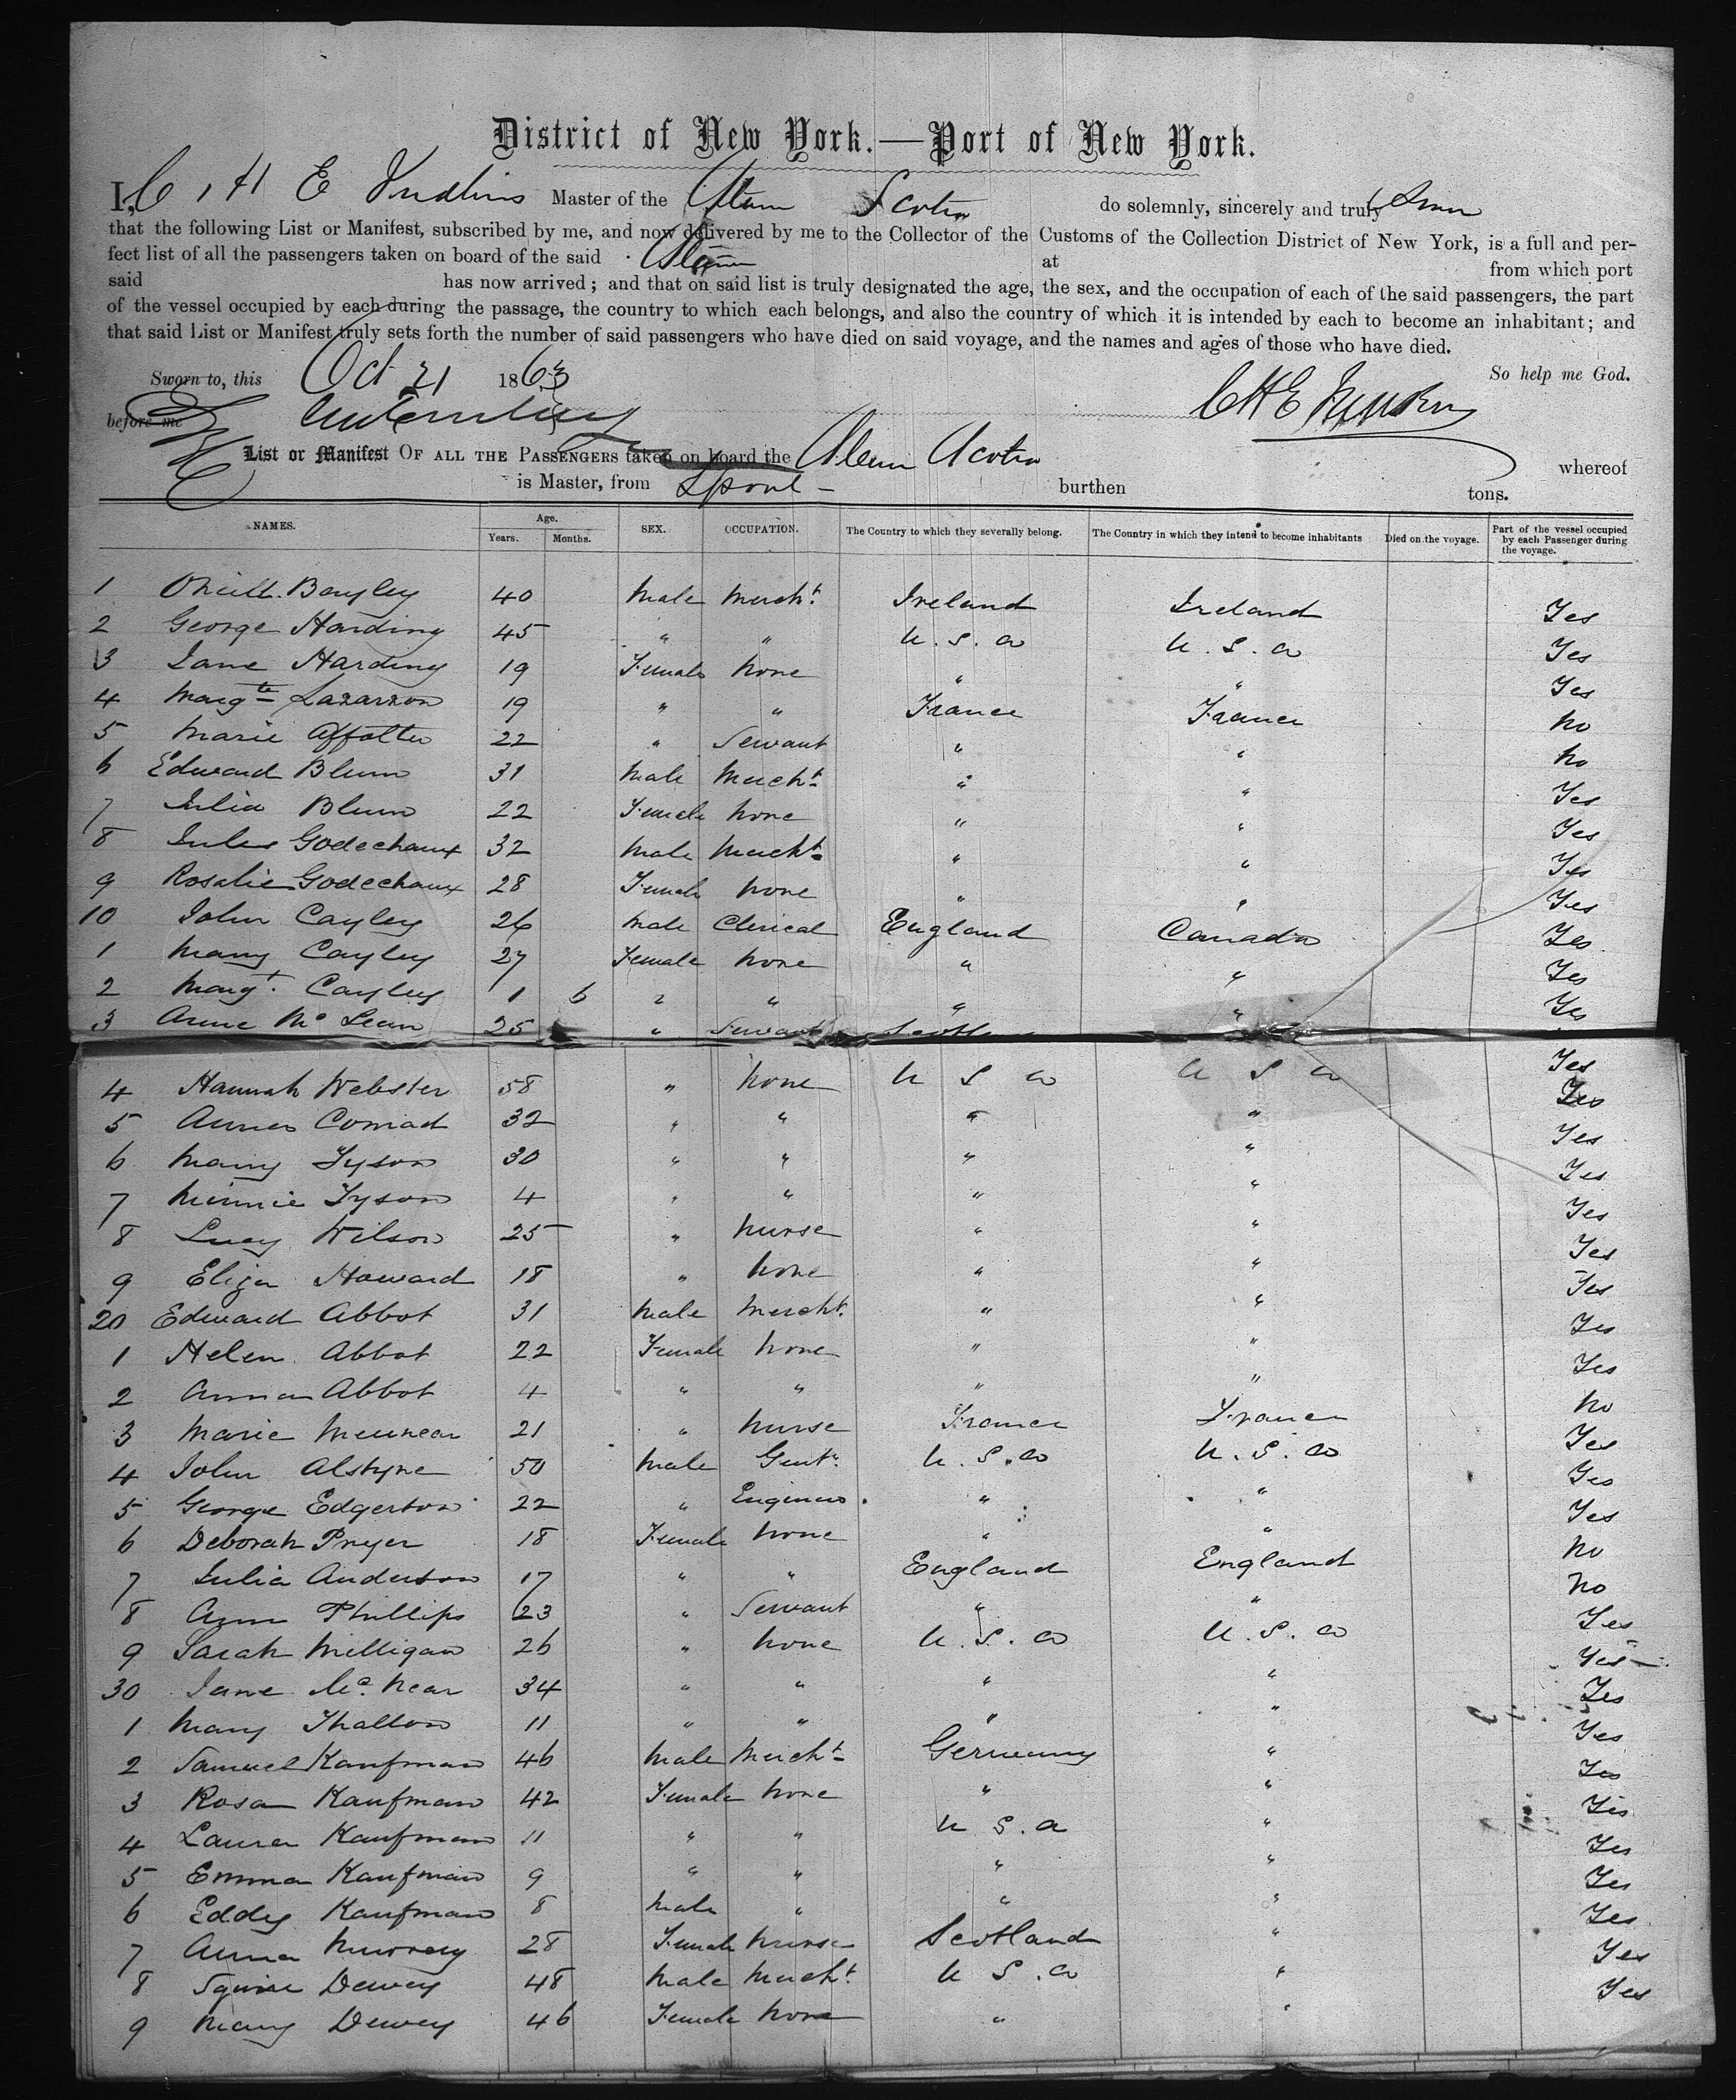 District of New York.—Port of New York.
I, C. H. E. Judkins Master of the Steam Scotia do solemnly, sincerely and truly Swear
that the following List or Manifest, subscribed by me, and now delivered by me to the Collector of the Customs of the Collection District of New York, is a full and per-
fect list of all the passengers taken on board of the said Steam at from which port
said has now arrived; and that on said list is truly designated the age, the sex, and the occupation of each of the said passengers, the part
of the vessel occupied by each during the passage, the country to which each belongs, and also the country of which it is intended by each to become an inhabitant; and
that said List or Manifest truly sets forth the number of said passengers who have died on said voyage, and the names and ages of those who have died.
So help me God.
Sworn to, this Oct 21 1863
before me C H E Judkins
List or Manifest OF ALL THE PASSENGERS taken on board the Steam Scotia whereof
is Master, from Lpool burthen tons.
NAMES. Age. Years. Months. SEX. OCCUPATION. The Country to which they severally belong. The Country in which they intend to become inhabitants Died on the voyage. Part of the vessel occupied by each Passenger during the voyage.
1 Oneill Bayley 40 Male Mercht. Ireland Ireland Yes
2 George Harding 45 " " U.S.a U.S.a Yes
3 Jane Harding 19 Female None " " Yes
4 Margte Lazarzon 19 " " France France No
5 Marie Affolter 22 " Servant " " No
6 Edward Blum 31 Male Mercht " " Yes
7 Julia Blum 22 Female None " " Yes
8 Jules Godechaux 32 Male Mercht " " Yes
9 Rosalie Godechaux 28 Female None " " Yes
10 John Cayley 26 Male Clerical England Canada Yes
1 Mary Cayley 27 Female None " " Yes
2 Margt. Cayley 1 6 " " " " Yes
3 Anne Mc Lean 25 " Servant "
4 Hannah Webster 58 " None U S a U S a Yes
5 Annes Conrad 32 " " " " Yes
6 Mary Tyson 30 " " " " Yes
7 Minnie Tyson 4 " " " " Yes
8 Lucy Wilson 25 " Nurse " " Yes
9 Eliza Howard 18 " None " " Yes
20 Edward Abbot 31 Male Mercht. " " Yes
1 Helen Abbot 22 Female None " " Yes
2 Anna Abbot 4 " " " " Yes
3 Marie Meunear 21 " Nurse France France No
4 John Alstyne 50 Male Gentn. U.S.a U.S.a Yes
5 George Edgerton 22 " Engineer " " Yes
6 Deborah Pryer 18 Female None " " Yes
7 Julia Anderson 17 " " England England No
8 Ann Phillips 23 " Servant " " No
9 Sarah Milligan 26 " None U.S.a U.S.a Yes
30 Jane Mc Near 34 " " " " Yes
1 Mary Thallon 11 " " " " Yes
2 Samuel Kaufman 46 Male Mercht Germany " Yes
3 Rosa Kaufman 42 Female None " " Yes
4 Laura Kaufman 11 " " U S.a " Yes
5 Emma Kaufman 9 " " " " Yes
6 Eddy Kaufman 8 Male " " " Yes
7 Anna Murray 28 Female Nurse Scotland " Yes
8 Squire Dewey 48 Male Mercht. U S.a " Yes
9 Mary Dewey 46 Female None " " Yes